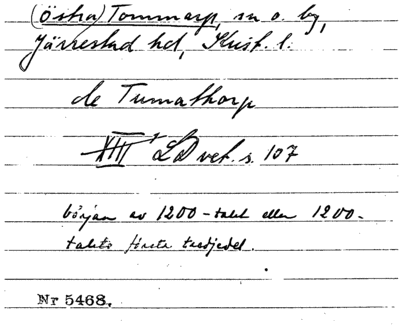 (Östra) Tommarp, sn o. by,
Järrestad hd, Krist. l.
de Tumathorp
XIII¹ LD vet. s. 107
början av 1200-talet eller 1200-
talets första tredjedel.
Nr 5468.